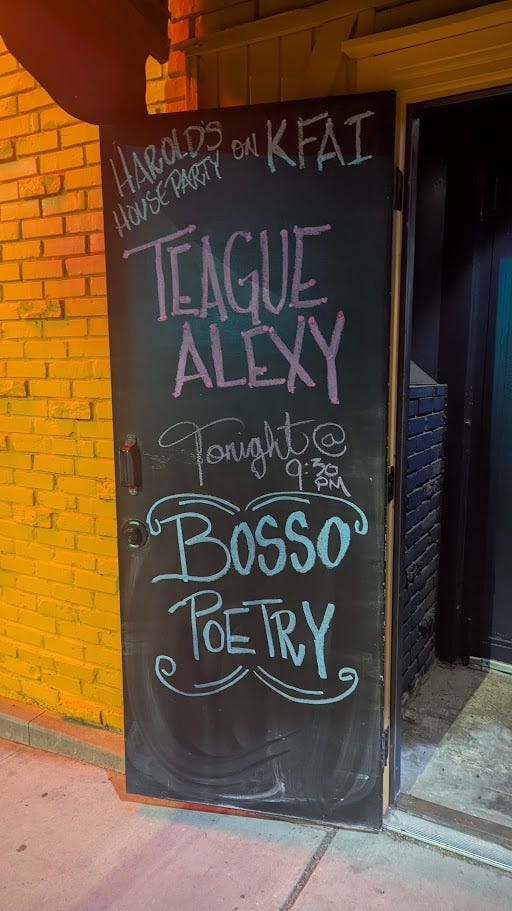 HAROLD'S ON KFAI
HOUSE PARTY
TEAGUE
ALEXY
Tonight @
9:30
PM
BOSSO
POETRY